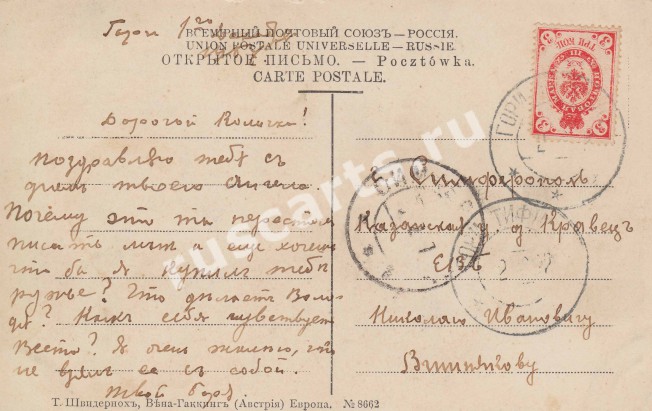 Гори 1го
ВСЕМІРНЫЙ ПОЧТОВЫЙ СОЮЗЪ — РОССІЯ.
UNION POSTALE UNIVERSELLE — RUSSIE.
ОТКРЫТОЕ ПИСЬМО. — Pocztówka.
CARTE POSTALE.
3 ТРИ КОП. 3
ГОРИ
Дорогой Количка!
поздравляю тебя съ
днемъ твоего ангела.
Почему это ты пересталъ
писать мнѣ а еще хочешь
что бы я купилъ тебѣ
ружье? Что дѣлаетъ Воло
дя? Какъ себя чувствуетъ
Веста? Я очень жалѣю, что
не взялъ ее съ собой.
твой Боря.
Симферополь
Казанская у. д Кравецъ
ЕВБ
Николаю Ивановичу
ГОРИ ТИФЛ
ruscarts.ru
Т. Швидернохъ, Вѣна-Гаккингъ (Австрія) Европа. № 8662